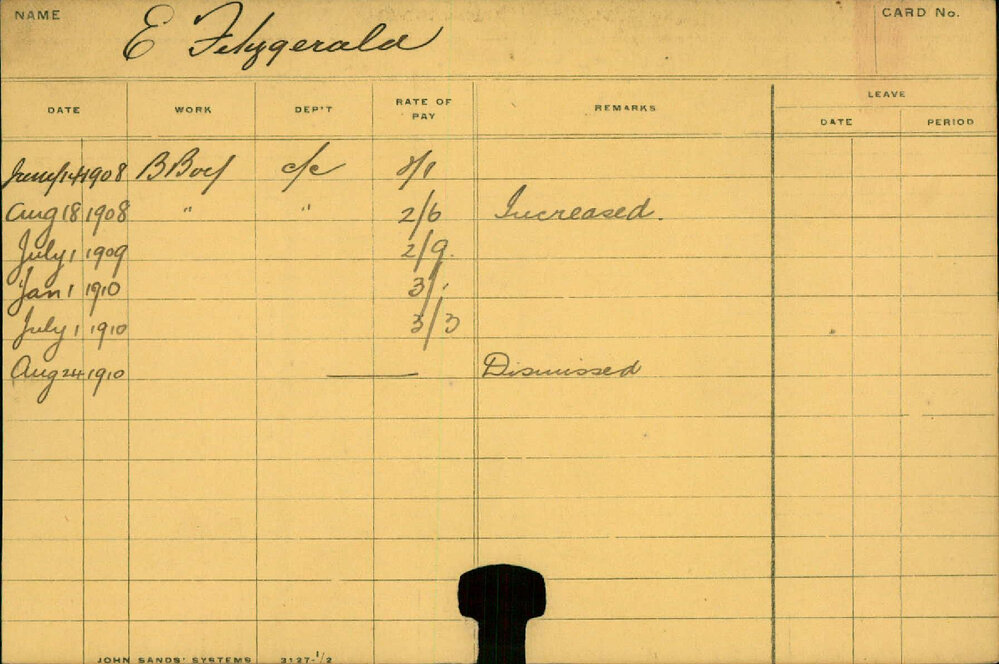 NAME E Fitzgerald CARD No.
DATE WORK DEP'T RATE OF PAY REMARKS LEAVE
DATE PERIOD
1908 B Boy c/c
Aug 18 1908 " " 2/6 Increased.
July 1 1909 2/9.
Jan 1 1910 3/.
July 1 1910 3/3
Aug 24 1910 —— Dismissed
JOHN SANDS' SYSTEMS 3127-1/2